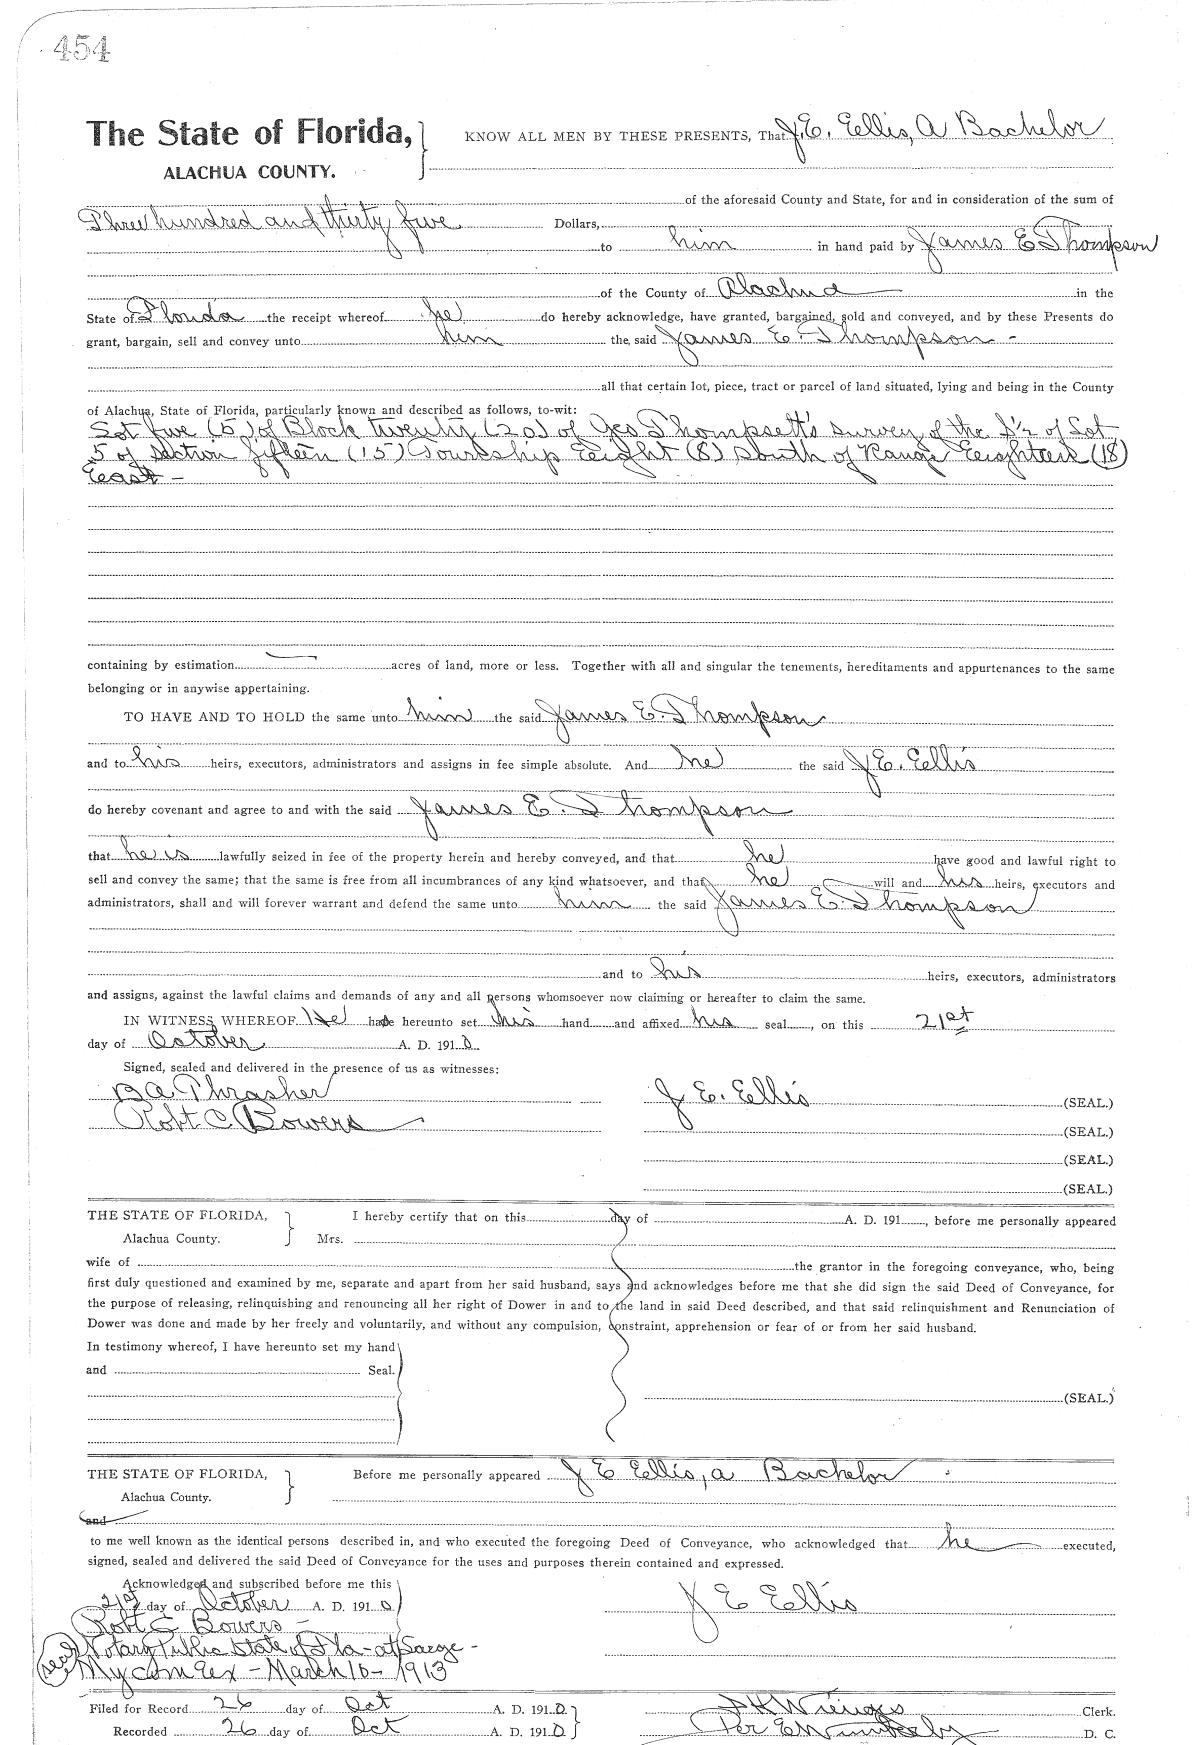 454
The State of Florida, KNOW ALL MEN BY THESE PRESENTS, That J. E. Ellis, A Bachelor
ALACHUA COUNTY.
of the aforesaid County and State, for and in consideration of the sum of
Three hundred and thirty five Dollars,
to him in hand paid by James E Thompson
of the County of Alachua in the
State of Florida the receipt whereof he do hereby acknowledge, have granted, bargained, sold and conveyed, and by these Presents do
grant, bargain, sell and convey unto him the said James E. Thompson -
all that certain lot, piece, tract or parcel of land situated, lying and being in the County
of Alachua, State of Florida, particularly known and described as follows, to-wit:
Lot five (5) of Block twenty (20) of Geo. Thompsett's survey of the S½ of Lot
5 of Section fifteen (15) Township Eight (8) South of Range Eighteen (18)
East -
containing by estimation acres of land, more or less. Together with all and singular the tenements, hereditaments and appurtenances to the same
belonging or in anywise appertaining.
TO HAVE AND TO HOLD the same unto him the said James E. Thompson
and to his heirs, executors, administrators and assigns in fee simple absolute. And he the said J E. Ellis
do hereby covenant and agree to and with the said James E. Thompson
that he is lawfully seized in fee of the property herein and hereby conveyed, and that he have good and lawful right to
sell and convey the same; that the same is free from all incumbrances of any kind whatsoever, and that he will and his heirs, executors and
administrators, shall and will forever warrant and defend the same unto him the said James E. Thompson
and to his heirs, executors, administrators
and assigns, against the lawful claims and demands of any and all persons whomsoever now claiming or hereafter to claim the same.
IN WITNESS WHEREOF He has hereunto set his hand and affixed his seal, on this 21st
day of October A. D. 1910.
Signed, sealed and delivered in the presence of us as witnesses:
B A Thrasher J E. Ellis (SEAL.)
Robt C. Bowers (SEAL.)
(SEAL.)
(SEAL.)
THE STATE OF FLORIDA, I hereby certify that on this day of A. D. 191 , before me personally appeared
Alachua County. Mrs.
wife of the grantor in the foregoing conveyance, who, being
first duly questioned and examined by me, separate and apart from her said husband, says and acknowledges before me that she did sign the said Deed of Conveyance, for
the purpose of releasing, relinquishing and renouncing all her right of Dower in and to the land in said Deed described, and that said relinquishment and Renunciation of
Dower was done and made by her freely and voluntarily, and without any compulsion, constraint, apprehension or fear of or from her said husband.
In testimony whereof, I have hereunto set my hand
and Seal.
(SEAL.)
THE STATE OF FLORIDA, Before me personally appeared J E Ellis, a Bachelor
Alachua County.
and
to me well known as the identical persons described in, and who executed the foregoing Deed of Conveyance, who acknowledged that he executed,
signed, sealed and delivered the said Deed of Conveyance for the uses and purposes therein contained and expressed.
Acknowledged and subscribed before me this
21st day of October A. D. 1910 J E Ellis
Robt C Bowers -
(seal) Notary Public State of Fla - at Large -
My com Ex - March 16 - 1913
Filed for Record 26 day of Oct A. D. 1910 Clerk.
Recorded 26 day of Oct A. D. 1910 Per D. C.